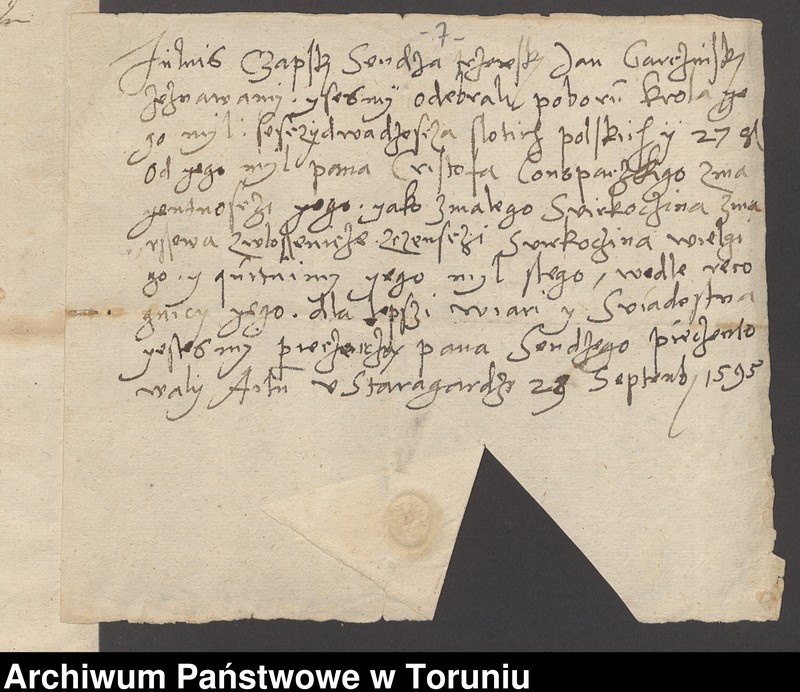 -7-
Juliis Czapsk Sendzia tczewsky Jan Garczinsky
zeznawamy ysesmy odebraly poborü krola ge
go myl: seseżydwadzeseza slotich polskich y 27 gl
Od yego myl pana Cristofa Conoparzkigo zma
yentnosczi yego. yako zmalego Svirkoczina zma
zwlossenicze. zczensczi Svirkoczina wielgi
go. y quituimy yego myl stego, wedle reco
gnicy yego. dla lepszi wiari y Sviadostva
yestesmy pieczenczo pana Sendzego pieczento
waly Actü v Staragardzi 29 Septemb 1595
Archiwum Państwowe w Toruniu